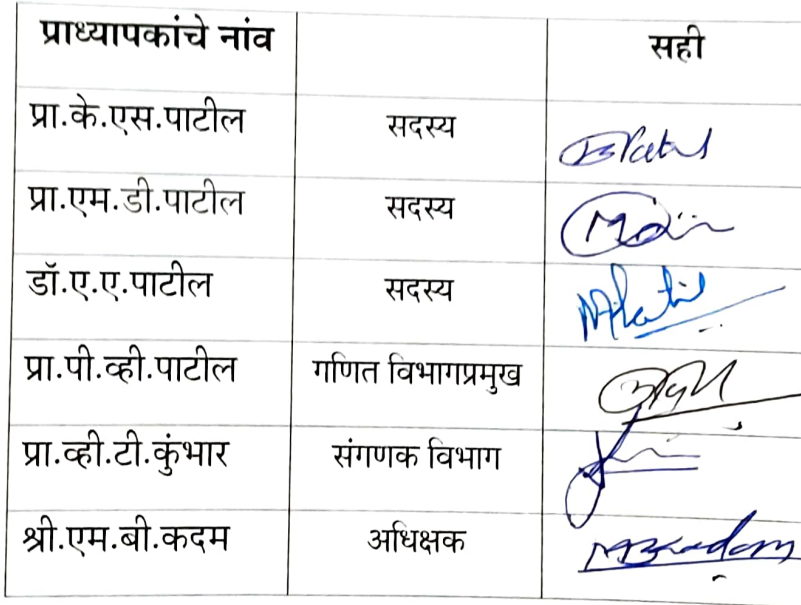 प्राध्यापकांचे नांव सही
प्रा.के.एस.पाटील सदस्य
प्रा.एम.डी.पाटील सदस्य
डॉ.ए.ए.पाटील सदस्य
प्रा.पी.व्ही.पाटील गणित विभागप्रमुख
प्रा.व्ही.टी.कुंभार संगणक विभाग
श्री.एम.बी.कदम अधिक्षक